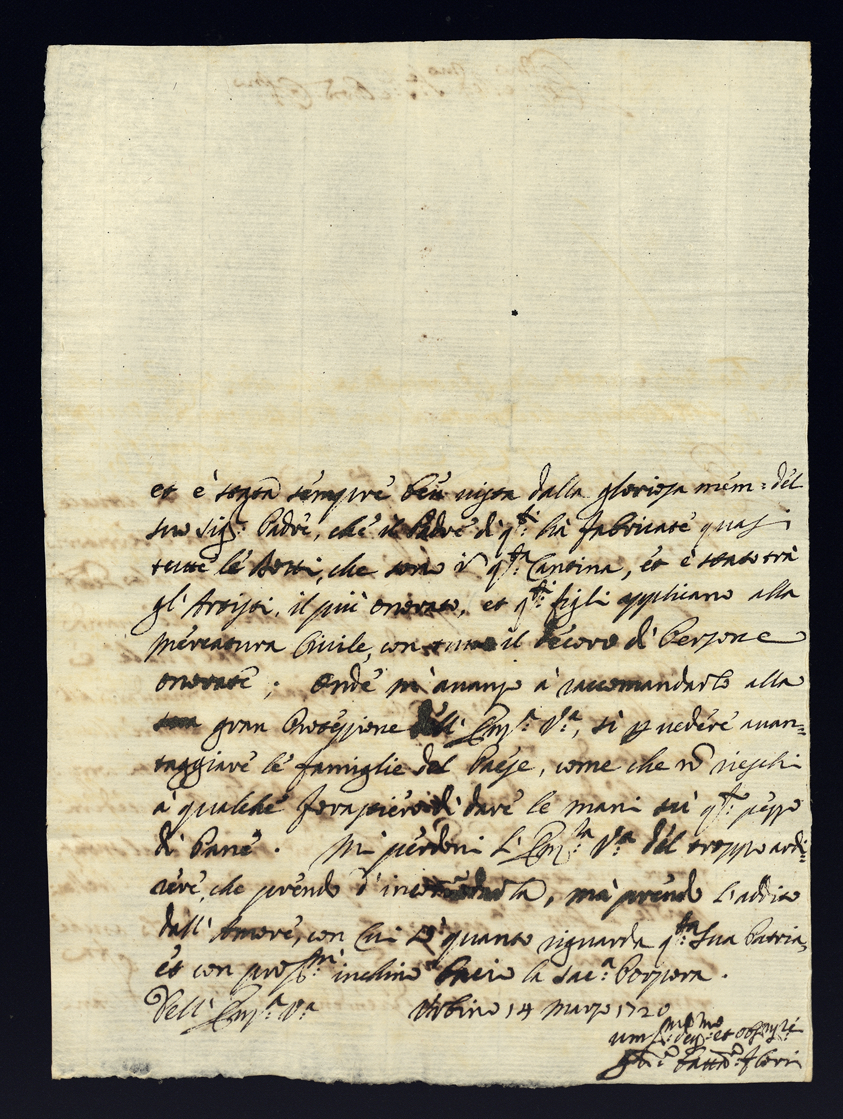 et è stata sempre ben vista dalla gloriosa mem: del
suo Sig.r Padre, che il Padre di q.ti hà fabricate quasi
tutte le Botti, che sono in q.ta Cantina, et è stato trà
gl'Artisti, il più onorato, et q.ti figli applicano alla
mercatura Civile, con tutto il decoro di Persone
onorate; Onde m'avanzo à raccomandarlo alla
gran Protezzione dell' Em.za V.a, si p vedere avan=
taggiare le famiglie del Paese, come che nō rieschi
à qualche forastiero di dare le mani sù q.to pezzo
di Pane. Mi perdoni l'Em.za V.a del troppo ardi=
re, che prendo d'incomodarla, mà prendo l'adito
dall'Amore, con Cui quanto riguarda q.ta Sua Patria,
et con prof.mo inchino bacio la sac.a Porpora.
Dell' Em.za V.a Urbino 14 Marzo 1720
um.mo dev.mo et